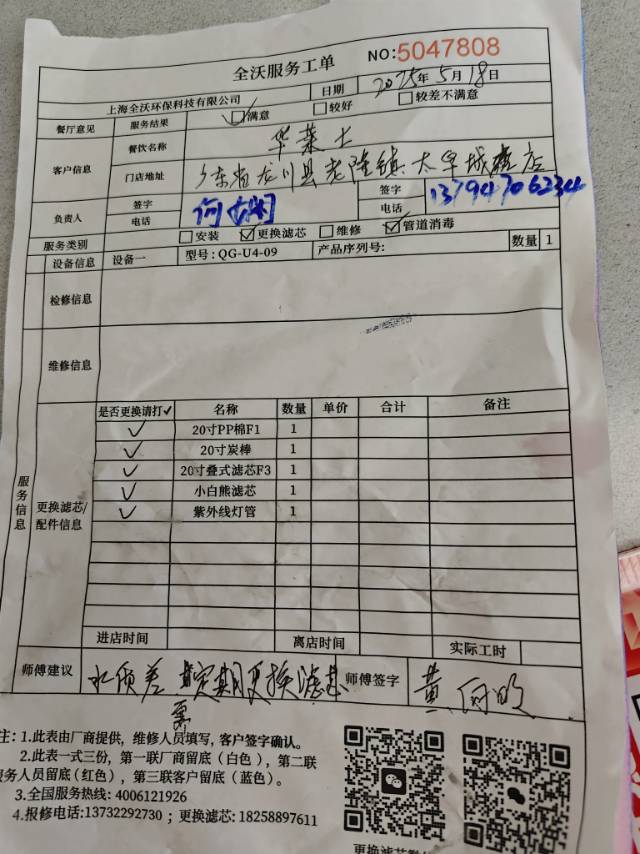 全沃服务工单
NO:5047808
上海全沃环保科技有限公司 日期 2025年5月18日
餐厅意见 服务结果 ☑满意 □较好 □较差不满意
客户信息 餐饮名称 华莱士
门店地址 广东省龙川县老隆镇太平城 店
负责人 签字 何 签字
电话 电话 13794706234
服务类别 □安装 ☑更换滤芯 □维修 ☑管道消毒
设备信息 设备一 型号:QG-U4-09 产品序列号: 数量 1
检修信息
维修信息
服务信息
更换滤芯/配件信息
是否更换请打✓ 名称 数量 单价 合计 备注
✓ 20寸PP棉F1 1
✓ 20寸炭棒 1
✓ 20寸叠式滤芯F3 1
✓ 小白熊滤芯 1
✓ 紫外线灯管 1
进店时间 离店时间 实际工时
师傅建议 水质差 需定期更换滤芯 师傅签字 黄
注：1.此表由厂商提供，维修人员填写，客户签字确认。
2.此表一式三份，第一联厂商留底（白色），第二联
服务人员留底(红色），第三联客户留底（蓝色）。
3.全国服务热线: 4006121926
4.报修电话:13732292730；更换滤芯: 18258897611